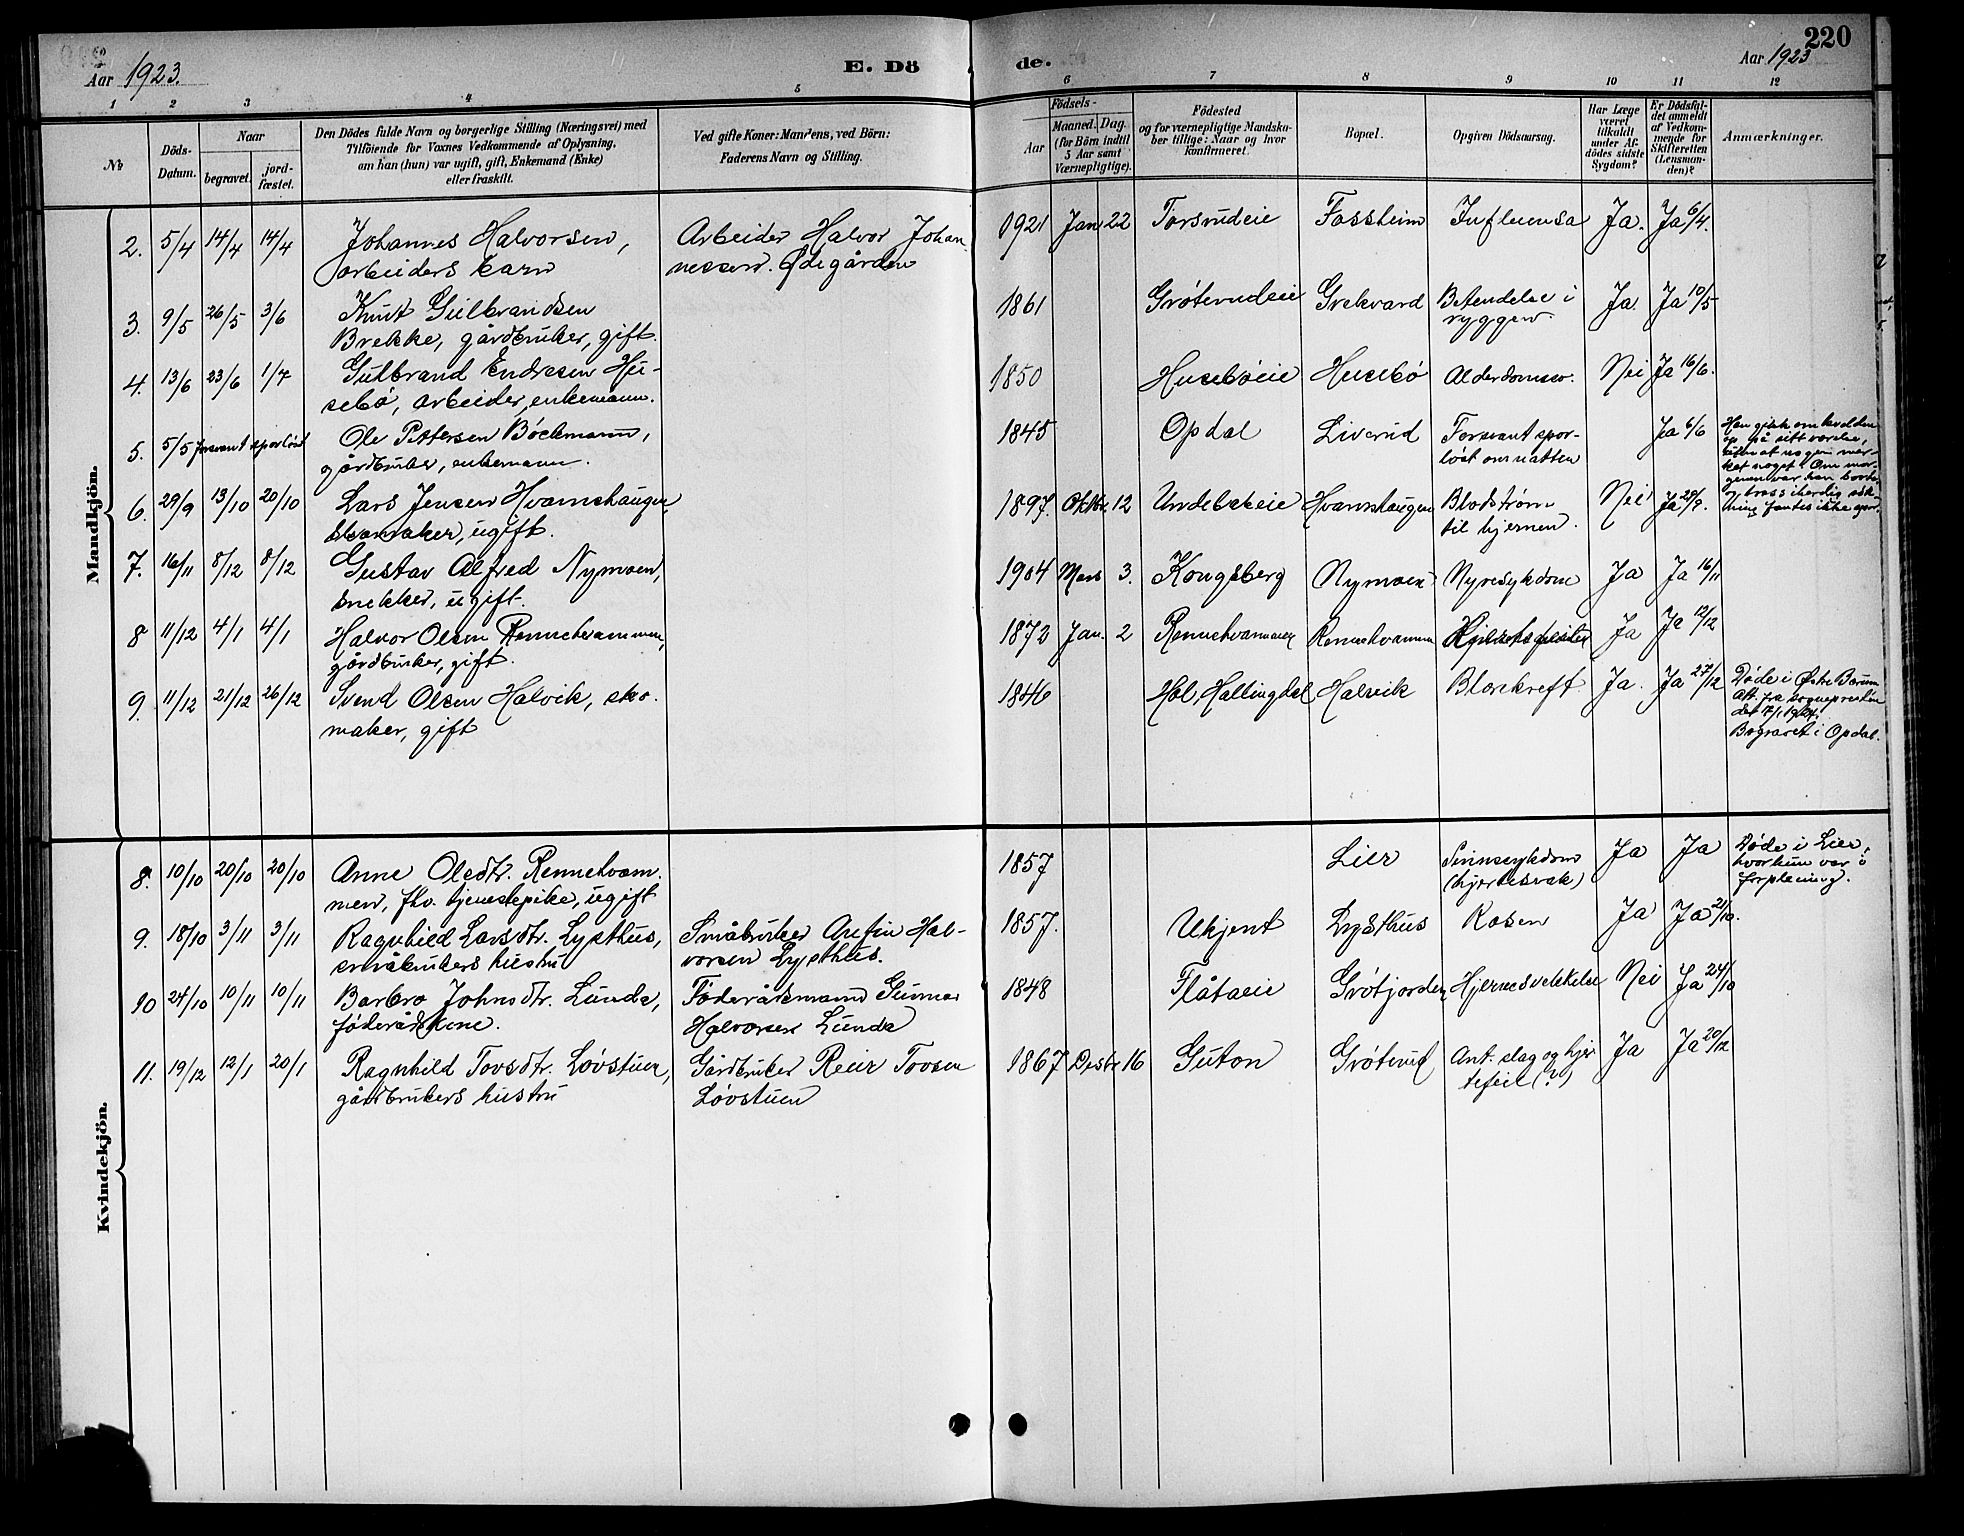 Aar 1923.
E. Dö
de.
220
Aar 1923
1 2 3 4 5 6 7 8 9 10 11 12
No
Döds-
Datum.
Naar
begravet.
jord-
fæstet.
Den Dödes fulde Navn og borgerlige Stilling (Næringsvei) med
Tilföiende for Voxnes Vedkommende af Oplysning,
om han (hun) var ugift, gift, Enkemand (Enke)
eller fraskilt.
Ved gifte Koner: Mandens, ved Börn:
Faderens Navn og Stilling.
Födsels-
Aar
Maaned.
Dag.
(for Börn indtil
5 Aar samt
Værnepligtige).
Födested
og for værnepligtige Mandska-
ber tillige: Naar og hvor
konfirmeret.
Bopæl.
Opgiven Dödsaarsag.
Har Læge
været
tilkaldt
under Af-
dödes sidste
Sygdom?
Er Dödsfal-
det anmeldt
af Vedkom-
mende for
Skifteretten
(Lensman-
den)?
Anmærkninger.
Mandkjön.
2. 5/4 14/4 14/4 Johannes Halvorsen, Arbeider Halvor Johan- 1921 Jan 22 Torsrudeie Fossheim Influensa Ja. Ja 6/4.
arbeiders barn nessen. Ødegården
3. 9/5 26/5 3/6 Knut Gulbrandsen 1861 Grøterudeie Grekvard Betendelse i Ja. Ja 10/5
Brekke, gårdbruker, gift. ryggen.
4. 13/6 23/6 1/7 Gulbrand Endresen Hu- 1850 Husebøeie Husebø Alderdomssv. Nei Ja 16/6.
sebö, arbeider, enkemann.
5. 5/5 forsvant sporløst Ole Pettersen Böckmann, 1845 Opdal Liverud Forsvant spor- Ja 6/6 Han gikk om kvelden
gårdbruker, enkemann. løst om natten op på sitt værelse,
uten at nogen mer-
ket noget. Om mor-
genen var han borte,
og tross iherdig søk-
ning fantes ikke spor.
6. 29/9 13/10 20/10 Lars Jensen Hvamshaugen, 1897. Oktbr. 12 Undebakeie Hvamshaugen Blodstrøm Nei Ja 29/9.
skomaker, ugift. til hjernen.
7. 16/11 8/12 8/12 Gustav Alfred Nymoen, 1904 Mars 3. Kongsberg Nymoen Nyresykdom Ja Ja 16/11
snekker, ugift.
8 11/12 4/1 4/1 Halvor Olsen Rennehvammen, 1872 Jan. 2 Rennehvammen Rennehvammen Ja Ja 12/12
gårdbruker, gift.
9. 11/12 21/12 26/12 Svend Olsen Halvik, sko- 1846 Hol, Hallingdal Halvik Blærekreft. Ja. Ja 27/12 Døde i Østre Bærum
maker, gift Att. fra sognepresten
det 7/1 1924.
Begravet i Opdal.
Kvindekjön.
8. 10/10 20/10 20/10 Anne Olsdtr. Rennehvam- 1857 Lier Sinnssykdom Ja Ja Døde i Lier,
men, fhv. tjenestepike, ugift (hjertesvak) hvor hun var i
forpleining.
9. 18/10 3/11 3/11 Ragnhild Larsdtr. Lysthus, Småbruker Arefin Hal- 1857. Ukjent Lysthus Rosen Ja Ja 21/10.
småbrukers hustru vorsen Lysthus.
10 24/10 10/11 10/11 Barbro Johnsdtr. Lunde, Føderådsmand Gunnar 1848 Flåtaeie Grøtjorden Hjernesvekkelse Nei Ja 24/10
føderådskone. Halvorsen Lunde
11. 19/12 12/1 20/1 Ragnhild Tovsdtr. Lövstuen, Gårdbruker Reier Tovsen 1867 Desbr. 16 Guton Grøterud Ant. slag og hjer- Ja Ja 20/12
gårdbrukers hustru Løvstuen tefeil (?)